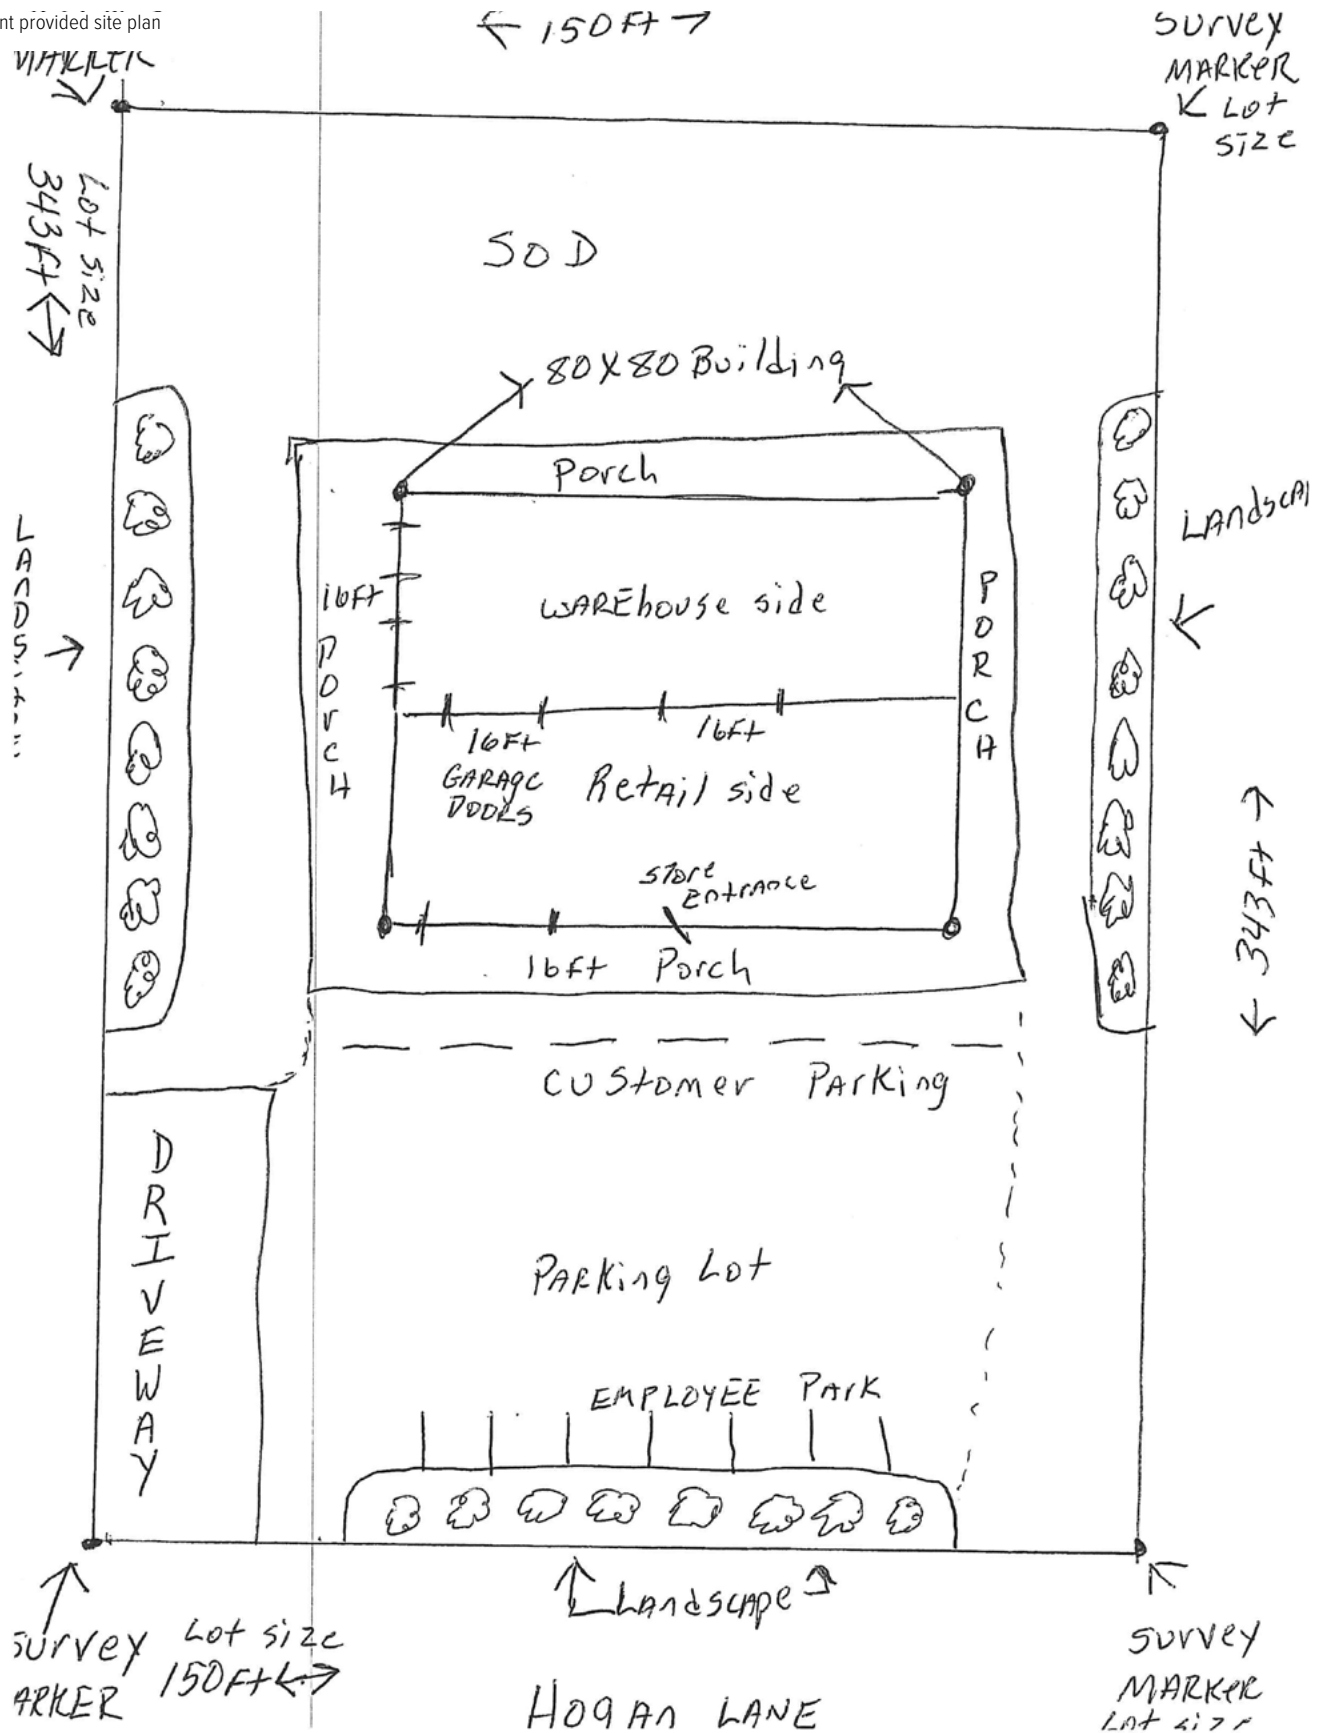 nt provided site plan
← 150Ft →
MARKER
Survey
MARKER
Lot
size
Lot size
343ft
SOD
80X80 Building
Porch
16Ft
Porch
WAREhouse side
PORCH
16Ft
16Ft
GARAGE
DOORS
Retail side
Store
Entrance
16ft Porch
LANDSCA
343ft
CUStomer PArking
DRIVEWAY
PARKing Lot
EMPLOYEE PArK
LAndscape
survey
ARKER
Lot size
150Ft
HOgAn LANE
survey
MARKER
Lot size